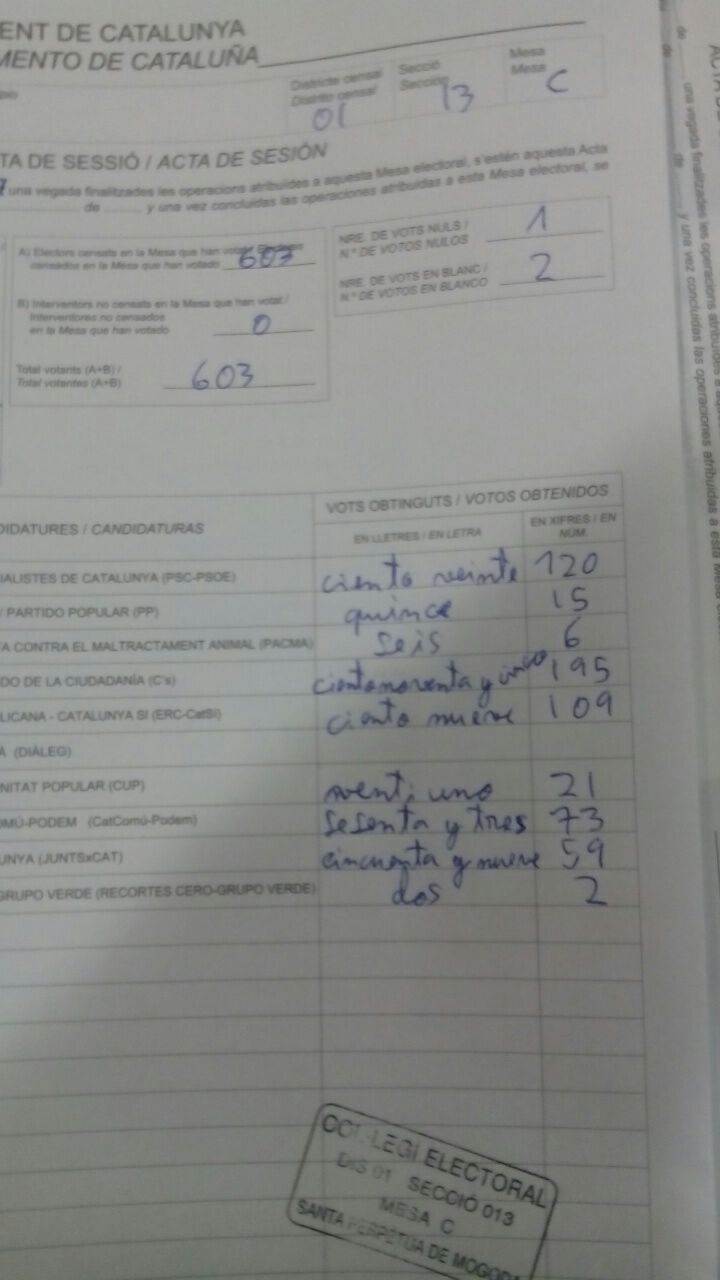 ENT DE CATALUNYA
MENTO DE CATALUÑA
Districte censal
Distrito censal
01
Secció
Sección
13
Mesa
Mesa
C
TA DE SESSIÓ / ACTA DE SESIÓN
una vegada finalitzades les operacions atribuïdes a aquesta Mesa electoral, s'estén aquesta Acta
de y una vez concluidas las operaciones atribuidas a esta Mesa electoral, se
A) Electors censats en la Mesa que han votat / Electores
censados en la Mesa que han votado 603
B) Interventors no censats en la Mesa que han votat /
Interventores no censados
en la Mesa que han votado 0
Total votants (A+B) /
Total votantes (A+B) 603
NRE. DE VOTS NULS /
N.º DE VOTOS NULOS 1
NRE. DE VOTS EN BLANC /
N.º DE VOTOS EN BLANCO 2
DIDATURES / CANDIDATURAS
VOTS OBTINGUTS / VOTOS OBTENIDOS
EN LLETRES / EN LETRA
EN XIFRES / EN
NÚM.
IALISTES DE CATALUNYA (PSC-PSOE) ciento veinte 120
/ PARTIDO POPULAR (PP) quince 15
A CONTRA EL MALTRACTAMENT ANIMAL (PACMA) seis 6
DO DE LA CIUDADANÍA (C's) cientonoventa y cinco 195
LICANA - CATALUNYA SÍ (ERC-CatSí) ciento nueve 109
A (DIÀLEG)
NITAT POPULAR (CUP) venti uno 21
OMÚ-PODEM (CatComú-Podem) sesenta y tres 73
UNYA (JUNTSxCAT) cincuenta y nueve 59
GRUPO VERDE (RECORTES CERO-GRUPO VERDE) dos 2
COL·LEGI ELECTORAL
DIS 01 SECCIÓ 013
MESA C
SANTA PERPETUA DE MOGODA
una vegada finalitzades les operacions atribuïdes a
y una vez concluidas las operaciones atribuidas a esta Mesa